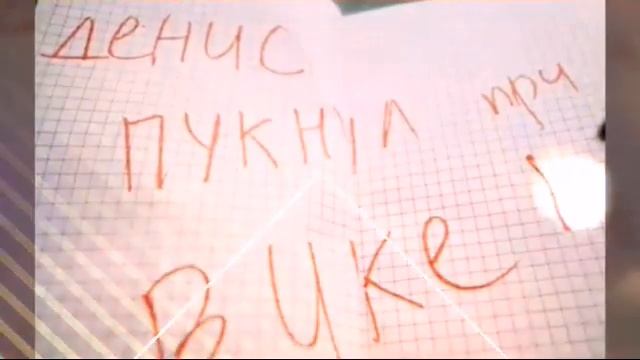 Денис
пукнул при
Вике!